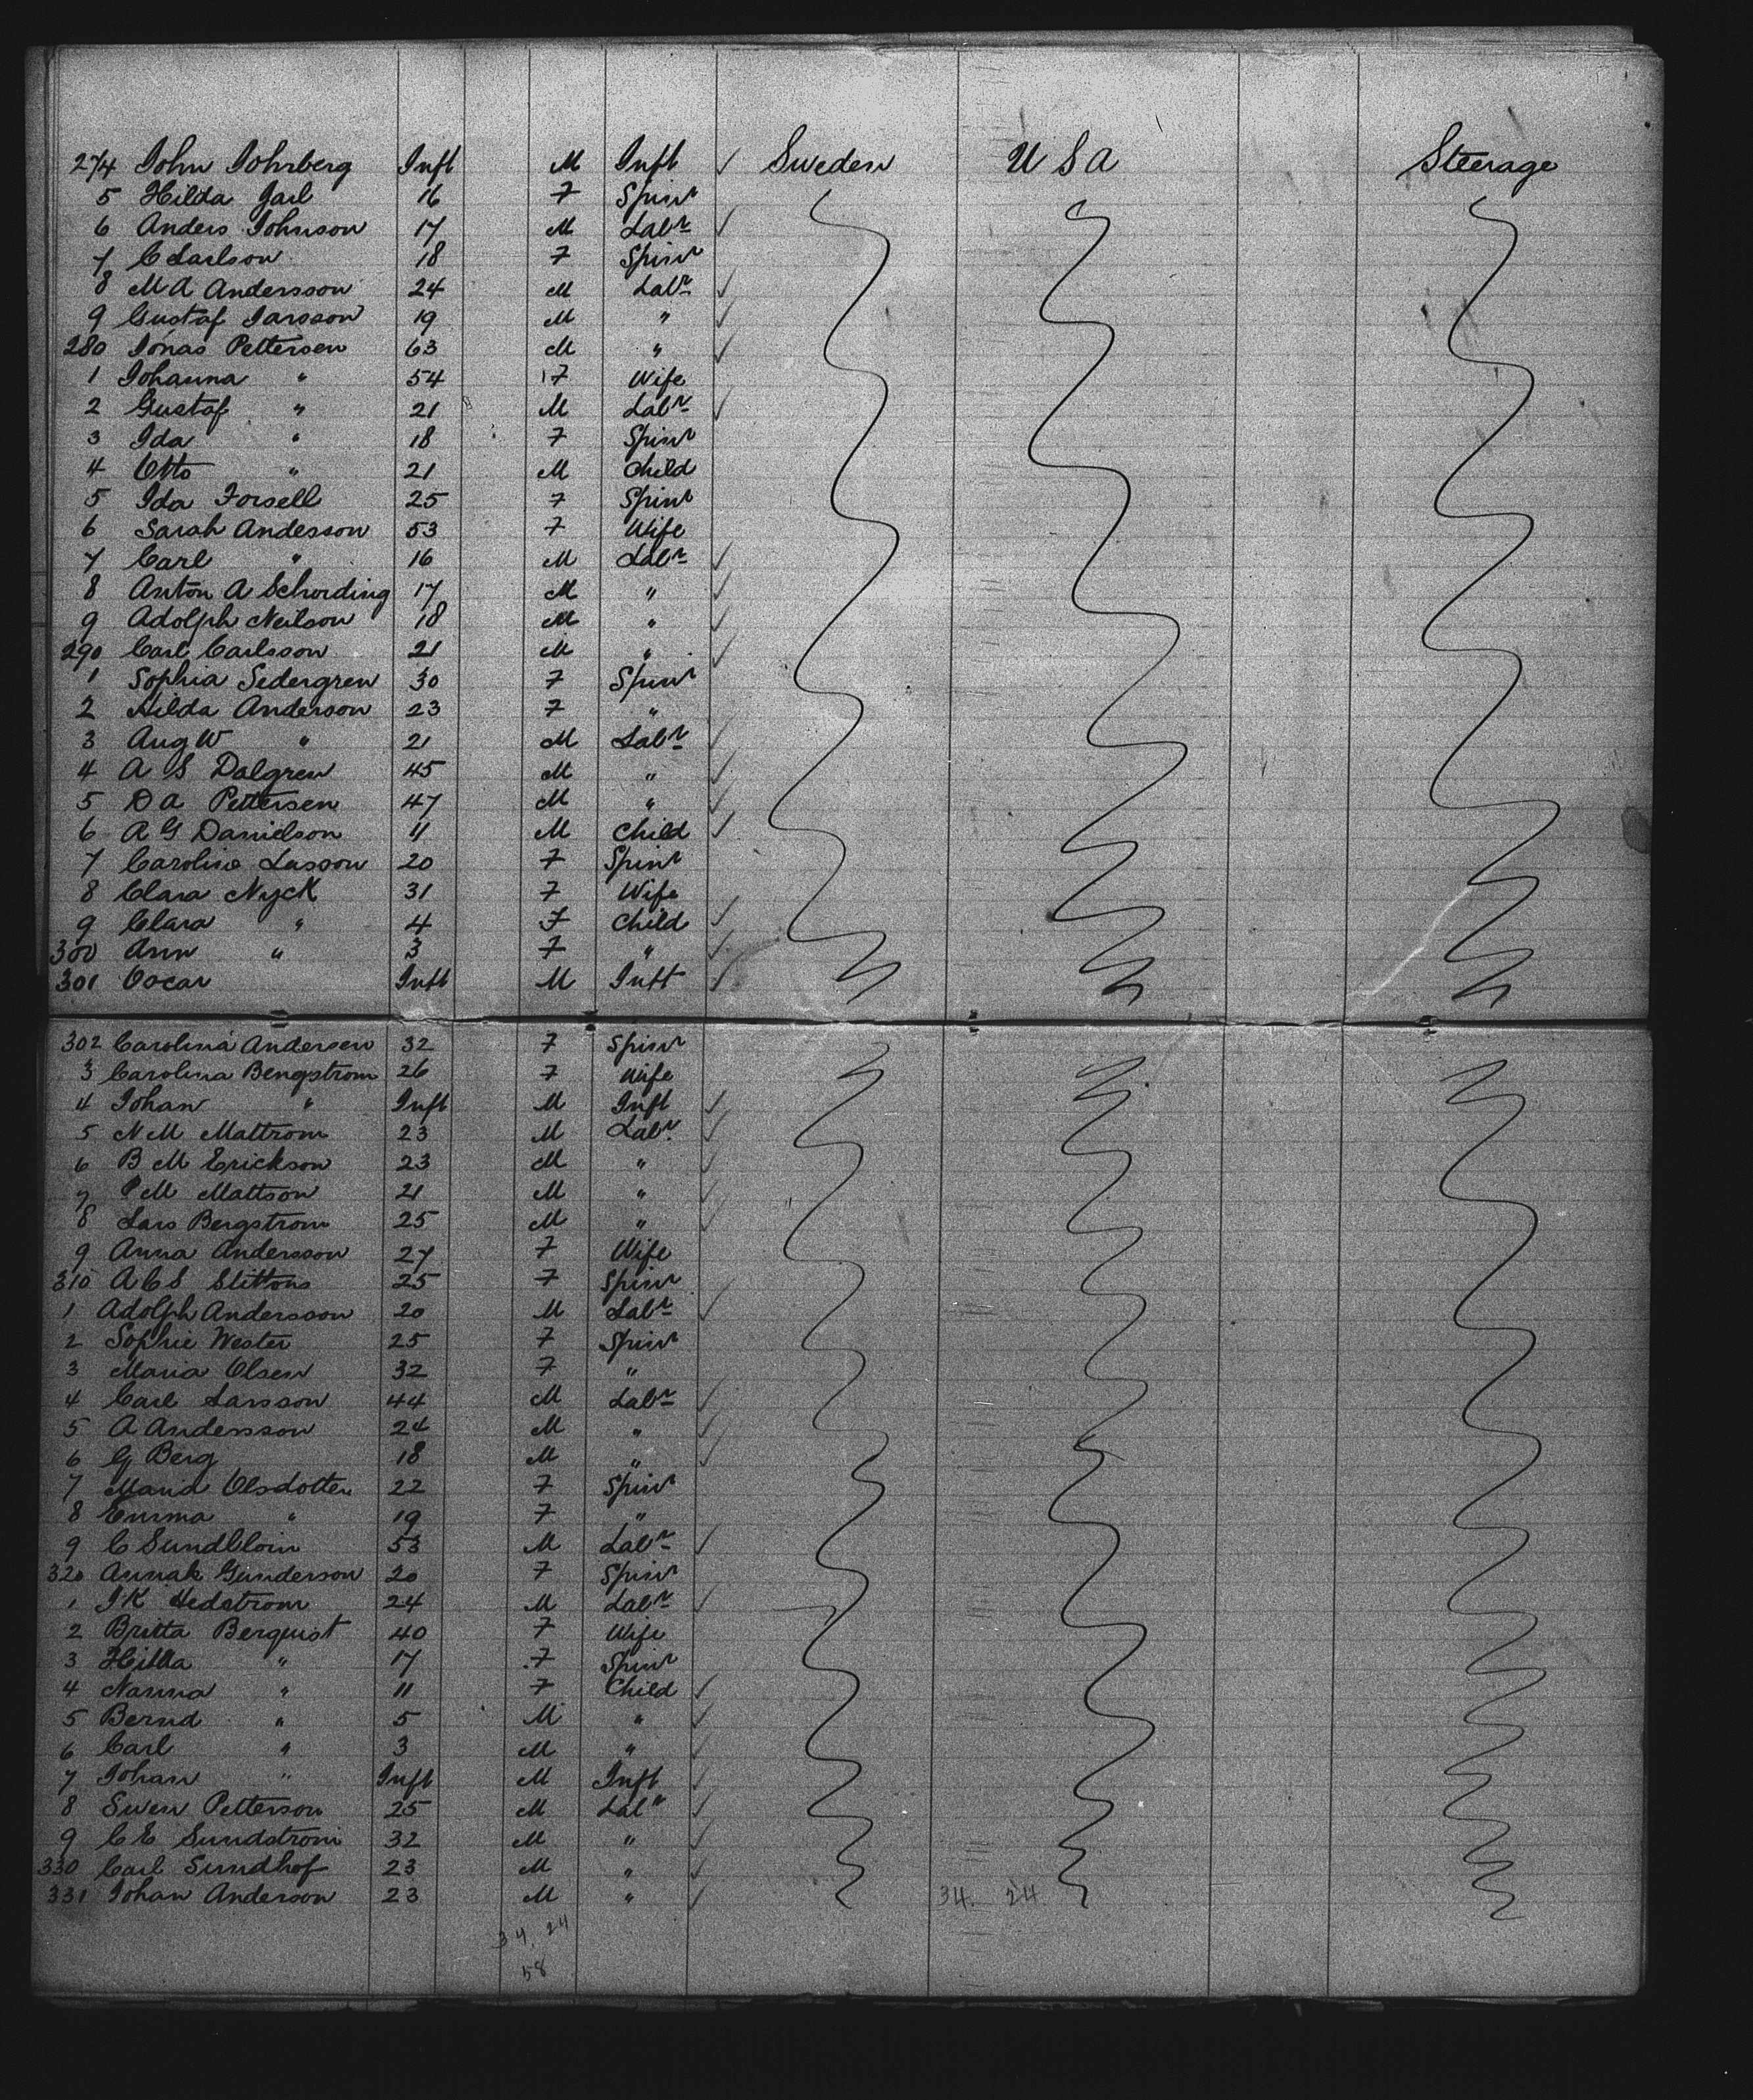 274 John Johrberg Inft M Inft ✓ Sweden U S A Steerage
5 Hilda Jarl 16 F Spinr
6 Anders Johnson 17 M Labr ✓
7 C Larlson 18 F Spinr
8 M A Andersson 24 M Labr ✓
9 Gustaf Jarsson 19 M " ✓
280 Jonas Pettersen 63 M " ✓
1 Johanna " 54 F Wife
2 Gustaf " 21 M Labr ✓
3 Ida " 18 F Spinr
4 Otto " 21 M Child
5 Ida Forsell 25 F Spinr
6 Sarah Andesson 53 F Wife
7 Carl " 16 M Labr ✓
8 Anton A Schording 17 M " ✓
9 Adolph Neilson 18 M " ✓
290 Carl Carlsson 21 M " ✓
1 Sophia Sedergren 30 F Spinr
2 Hilda Anderson 23 F "
3 Aug W " 21 M Labr ✓
4 A S Dalgren 45 M " ✓
5 D A Pettersen 47 M " ✓
6 A G Danielson 11 M Child ✓
7 Caroline Lasson 20 F Spinr
8 Clara Nyck 31 F Wife
9 Clara " 4 F Child ✓
300 Ann " 3 F " ✓
301 Oscar Inft M Inft ✓
302 Carolina Andersen 32 F Spinr
3 Carolina Bengstrom 26 F Wife
4 Johan " Inft M Inft ✓
5 N M Mattrom 23 M Labr ✓
6 B M Erickson 23 M " ✓
7 P M Mattson 21 M " ✓
8 Lars Bergstrom 25 M " ✓
9 Anna Andersson 27 F Wife
310 A C S Slittons 25 F Spinr
1 Adolph Andersson 20 M Labr ✓
2 Sophie Wester 25 F Spinr
3 Maria Olsen 32 F "
4 Carl Larsson 44 M Labr ✓
5 A Andersson 24 M " ✓
6 G Berg 18 M " ✓
7 Maria Olsdotter 22 F Spinr
8 Emma " 19 F "
9 C Sundblom 53 M Labr ✓
320 Annak Gunderson 20 F Spinr
1 J K Hedstrom 24 M Labr ✓
2 Britta Berquist 40 F Wife
3 Hilda " 17 F Spinr
4 Nanna " 11 F Child ✓
5 Bernd " 5 M " ✓
6 Carl " 3 M " ✓
7 Johan " Inft M Inft ✓
8 Swen Petterson 25 M Labr ✓
9 C E Sundstrom 32 M " ✓
330 Carl Sundhof 23 M " ✓
331 Johan Anderson 23 M " ✓ 34. 24
34. 24
58